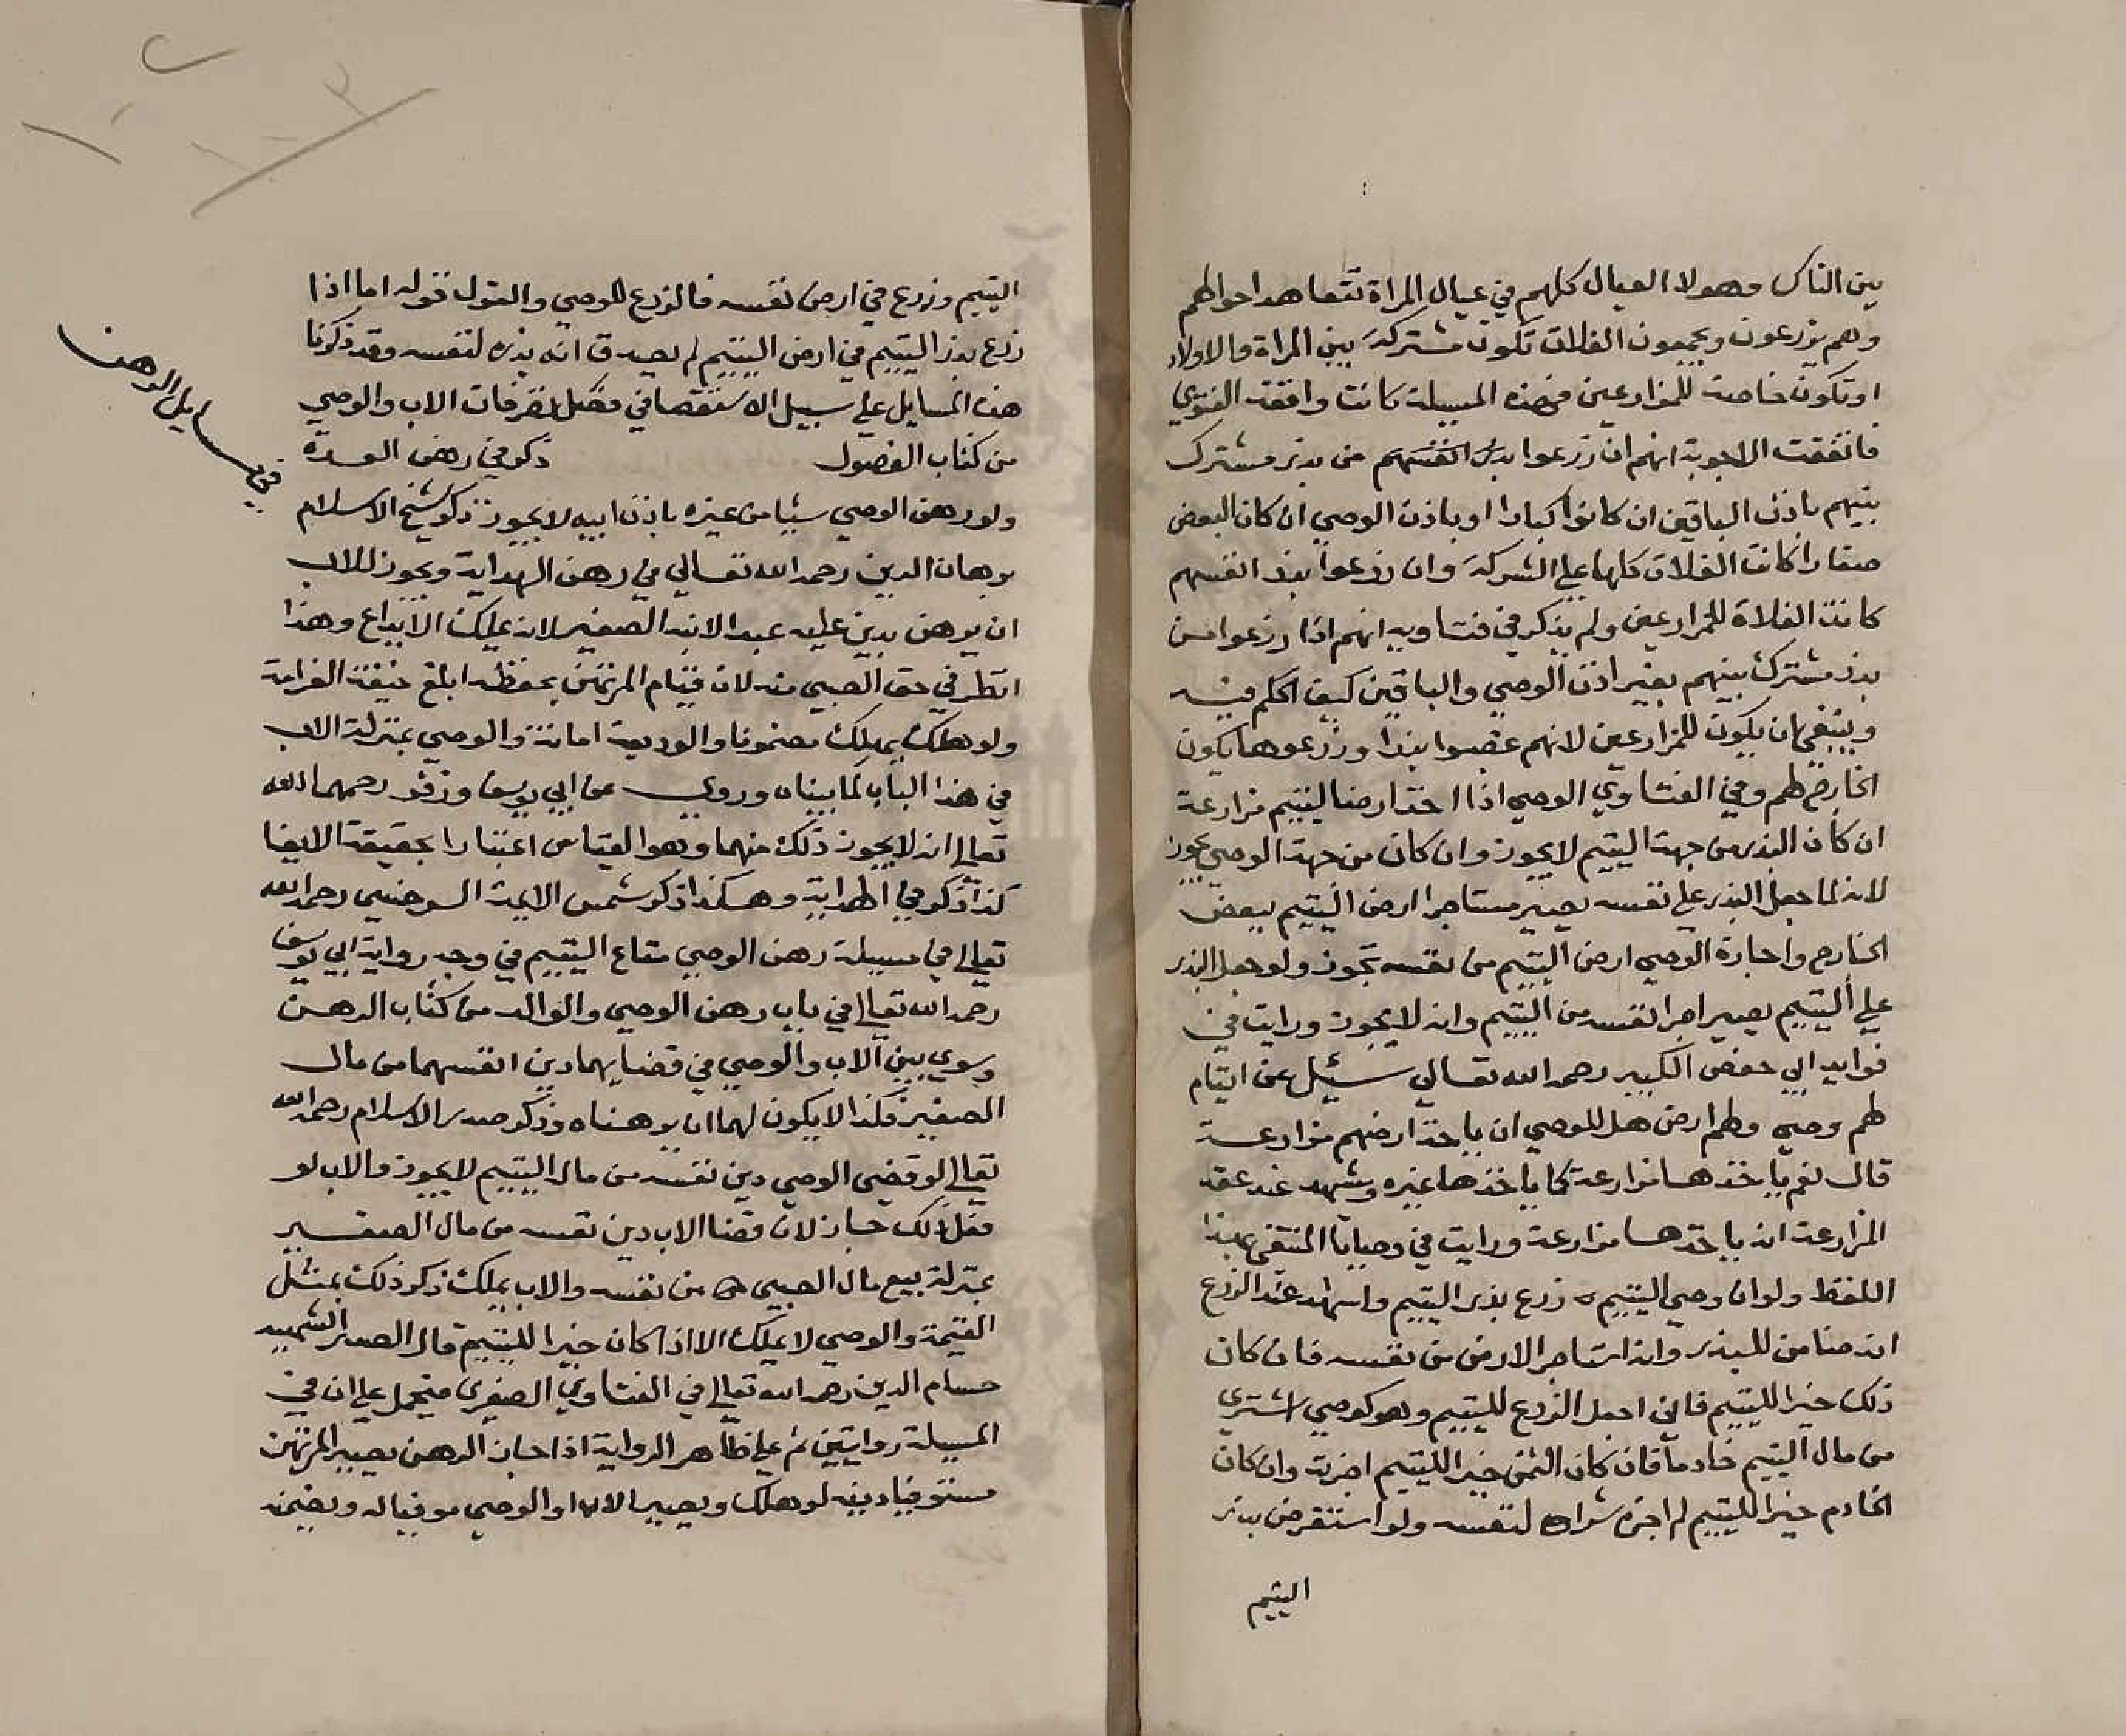 بين الناس وهولا العيال كلهم في عيال المراة تتعاهد احوالهم
وهم يزرعون ويجمعون الغلات تكون مشتركة بين المراة والاولاد
او تكون خاصة للمزارعين فهذه المسيلة كانت واقعة الفتوي
فاتفقت الاجوبة انهم ان زرعوا بذر انفسهم من بذر مشترك
بينهم باذن الباقين ان كانوا كبارا او باذن الوصي ان كان البعض
صغارا كانت الغلات كلها علي الشركة وان زرعوا بذر انفسهم
كانت الغلاة للمزارعين ولم يذكر في فتاويه انهم اذا زرعوا من
بذر مشترك بينهم بغير اذن الوصي والباقين كيف الحكم فيه
وينبغي ان يكون للمزارعين لانهم غصبوا بذرا وزرعوها يكون
الخارج لهم وفي الفتاوي الوصي اذا اخذ ارض اليتيم مزارعة
ان كان البذر من جهة اليتيم لا يجوز وان كان من جهة الوصي يجوز
لانه لما جعل البذر علي نفسه يصير مستاجرا ارض اليتيم ببعض
الخارج واجارة الوصي ارض اليتيم من نفسه تجوز ولو جعل البذر
علي اليتيم يصير اجر نفسه من اليتيم وانه لا يجوز ورايت في
فوايد ابي حفص الكبير رحمه الله تعالي سئيل عن ايتام
لهم وصي ولهم ارض هل للوصي ان ياخذ ارضهم مزارعة
قال نعم ياخذها مزارعة كما ياخذها غيره ويشهد عند عقد
المزارعة انه ياخذها مزارعة ورايت في وصايا المنتقي بهذا
اللفظ ولو ان وصي اليتيم زرع بذر اليتيم واشهد عند الزرع
انه ضامن للبذر وانه استاجر الارض من نفسه فان كان
ذلك خيرا لليتيم فاني اجعل الزرع لليتيم وهو كوصي اشتري
من مال اليتيم خادما فان كان الثمن خيرا لليتيم اجزته وان كان
الخادم خيرا لليتيم لم اجز شراه لنفسه ولو استقرض بذر
اليتيم
اليتيم وزرع في ارض نفسه فالزرع للوصي والقول قوله اما اذا
زرع بذر اليتيم في ارض اليتيم لم يصدق انه بذره لنفسه وقد ذكرنا
هذه المسايل علي سبيل الاستقصا في فصل تصرفات الاب والوصي
من كتاب الفصول ذكر في رهن العدة
في مسايل الرهن
ولو رهن الوصي شيا من غيره باذن ابيه لا يجوز ذكر شيخ الاسلام
برهان الدين رحمه الله تعالي في رهن الهداية ويجوز للاب
ان يرهن بدين عليه عبدا لابنه الصغير لانه يملك الايداع وهذا
انظر في حق الصبي منه لان قيام المرتهن بحفظه ابلغ خيفة الغرامة
ولو هلك يهلك مضمونا والوديعة امانة والوصي بمنزلة الاب
في هذا الباب لما بيناه وروي عن ابي يوسف وزفر رحمهما الله
تعالي انه لا يجوز ذلك منهما وهو القياس اعتبارا بحقيقة الايفا
كذا ذكر في الهداية وهكذا ذكر شمس الايمة السرخسي رحمه الله
تعالي في مسيلة رهن الوصي متاع اليتيم في وجه رواية ابي يوسف
رحمه الله تعالي في باب رهن الوصي والوالد من كتاب الرهن
وسوي بين الاب والوصي في قضايهما دين انفسهما من مال
الصغير فكذا لا يكون لهما ان يرهناه وذكر صدر الاسلام رحمه الله
تعالي لو قضي الوصي دين نفسه من مال اليتيم لا يجوز والاب لو
فعل ذلك جاز لان قضا الاب دين نفسه من مال الصغير
بمنزلة بيع مال الصبي من نفسه والاب يملك ذكر ذلك بمثل
القيمة والوصي لا يملك الا اذا كان خيرا لليتيم قال الصدر الشهيد
حسام الدين رحمه الله تعالي في الفتاوي الصغري فيحمل علي ان في
المسيلة روايتين ثم علي ظاهر الرواية اذا جاز الرهن يصير المرتهن
مستوفيا دينه لو هلك ويصير الاب او الوصي موفيا له ويضمنه